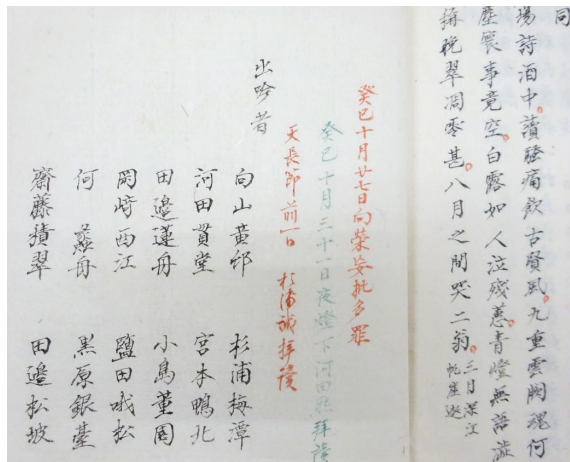 同
場詩酒中讀騷痛飲古賢風九重雲闕魂何
塵寰事竟空白露如人泣殘蕙青燈無語澁
梅晚翠凋零甚八月之間哭二翁三月深江
癸巳十月廿七日向榮妄批多罪
癸巳十月三十一日夜燈下河田熙拜讀
天長節前一日 杉浦誠拜讀
出吟者
向山黃邨 杉浦梅潭
河田貫堂 宮本鴨北
田邉蓮舟 小島董園
岡崎西江 鹽田峨松
何 黒原銀臺
齋藤積翠 田邉松坡